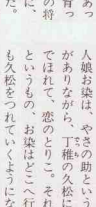 あっ
人娘お染は、やさの助という
がありながら、丁稚の久松に
でほれて、恋のとりこ。それ
というもの、お染はどこへ行
も久松をつれていくようにな
た。